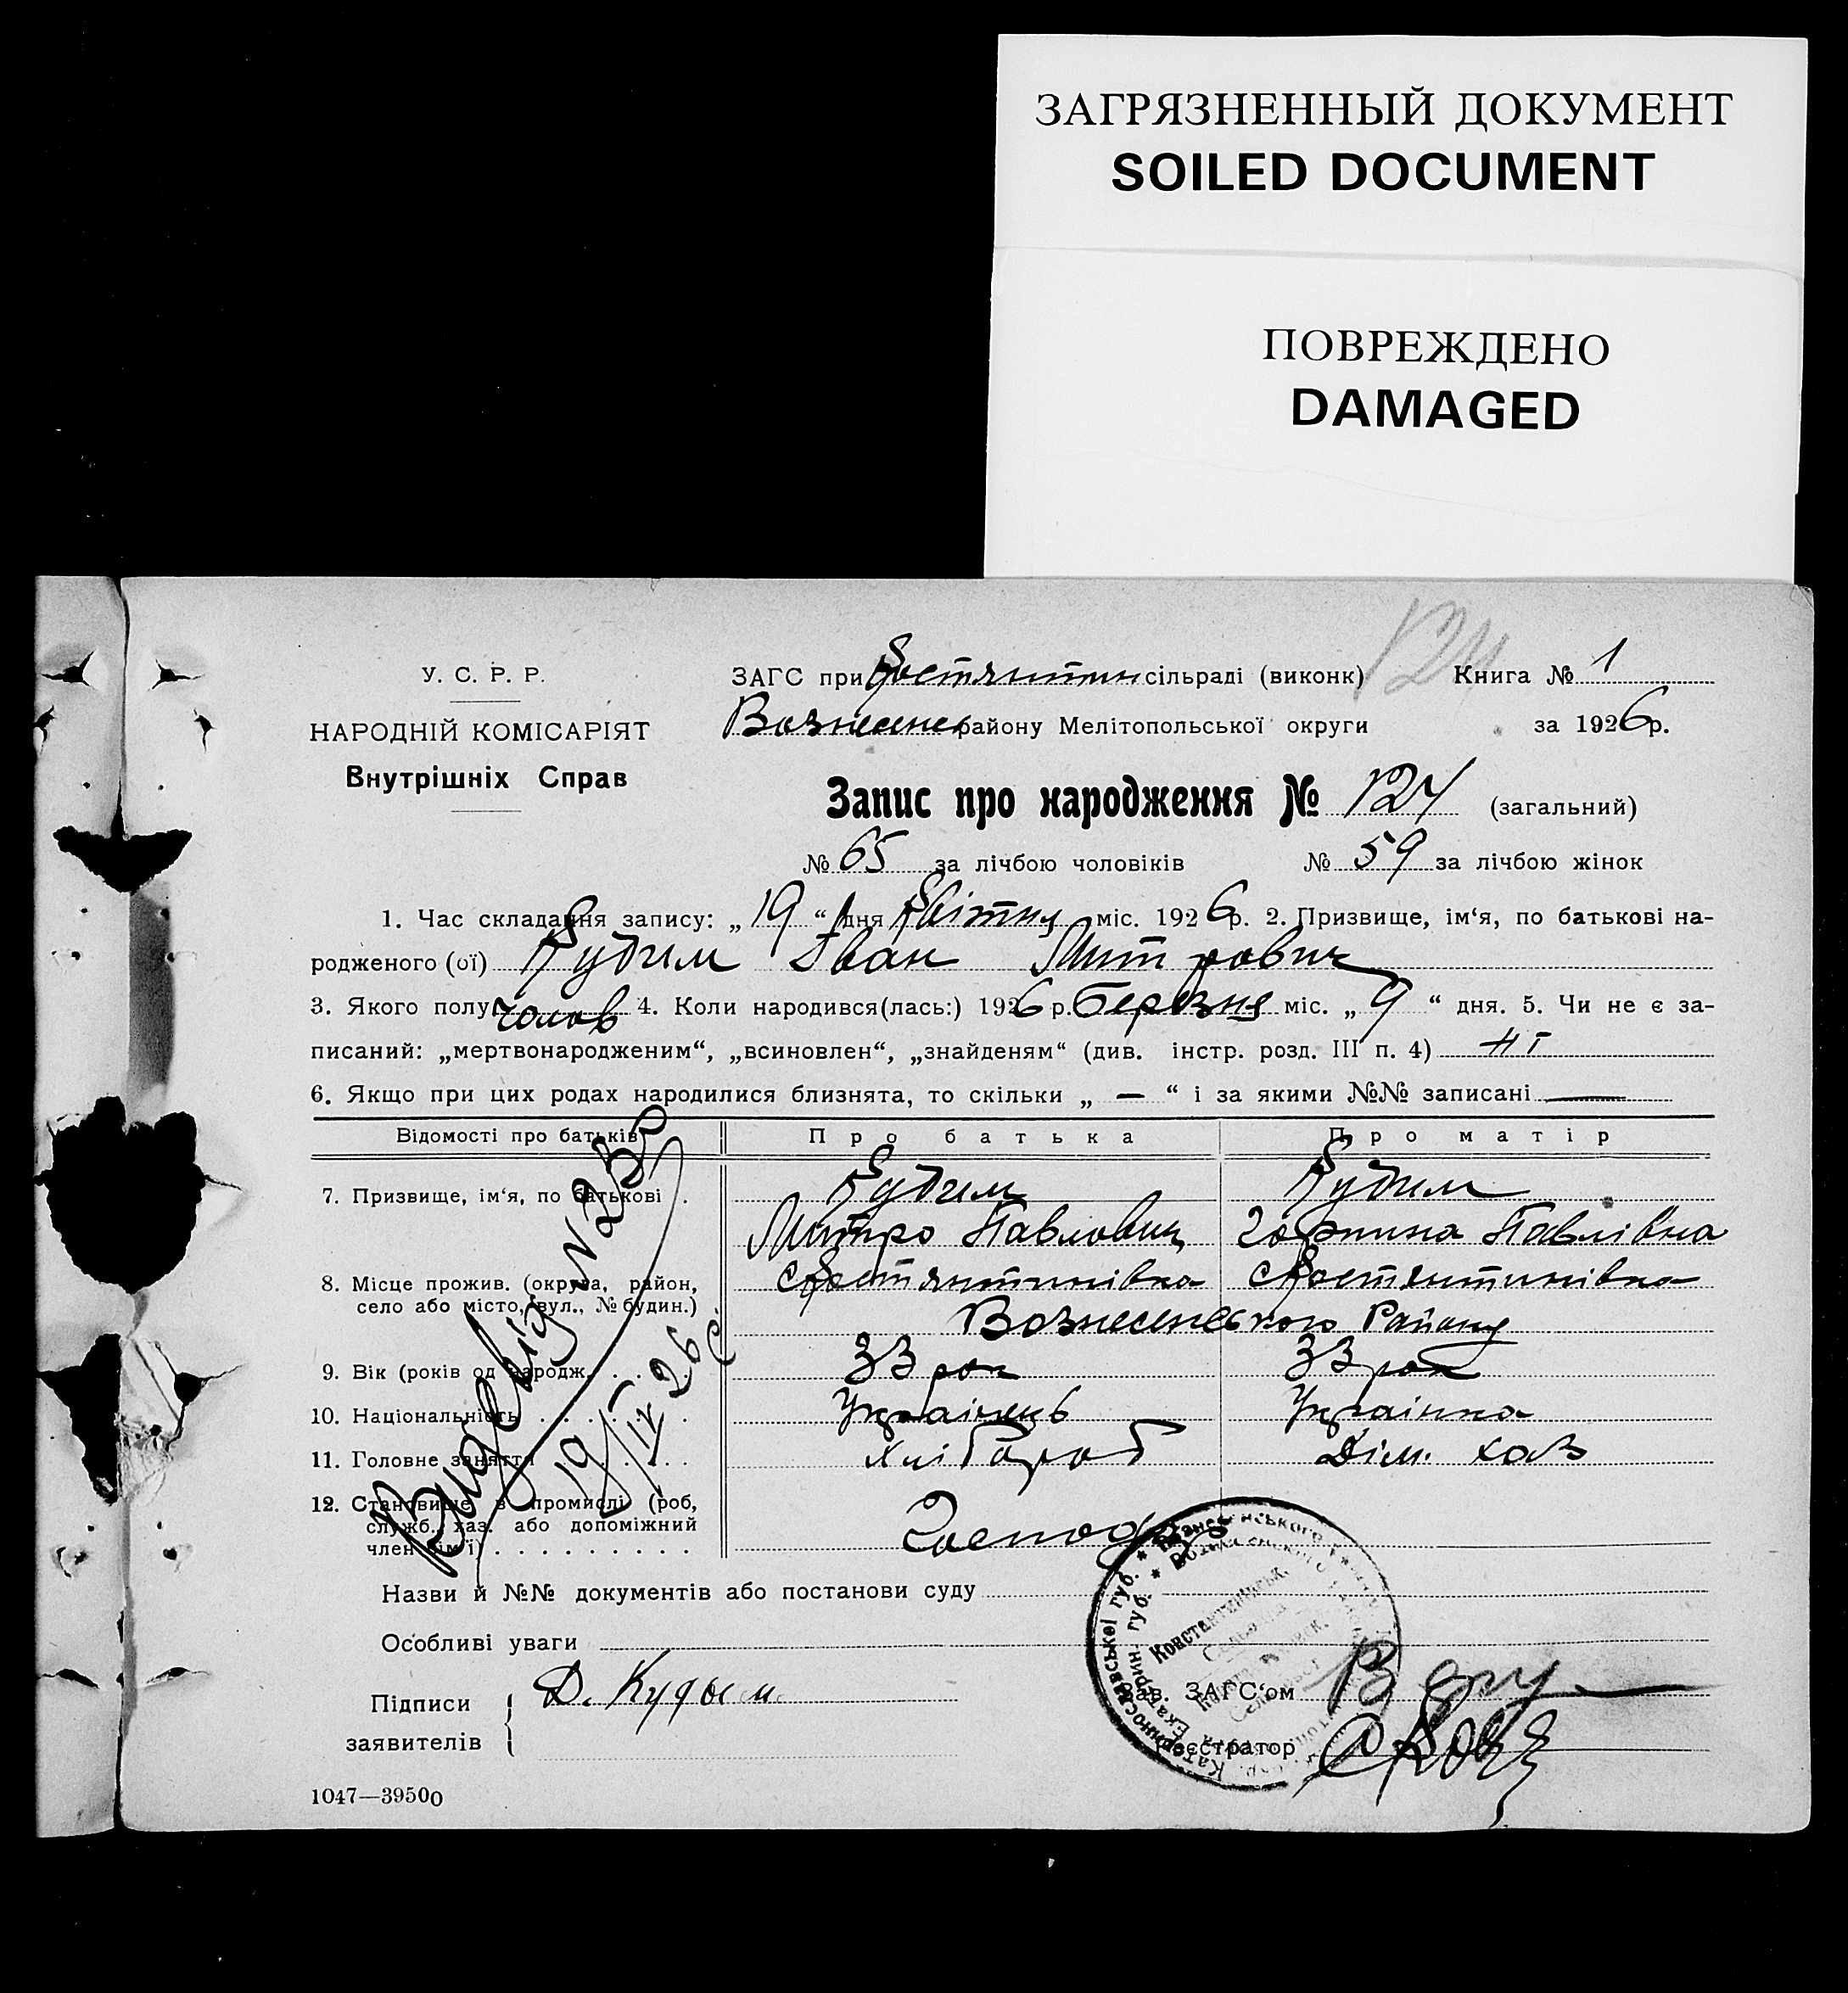 ЗАГРЯЗНЕННЫЙ ДОКУМЕНТ
SOILED DOCUMENT
ПОВРЕЖДЕНО
DAMAGED
124
У. С. Р. Р.
НАРОДНІЙ КОМІСАРІЯТ
Внутрішніх Справ
ЗАГС при Костянтин сільраді (виконк) Книга № 1
Вознесенс району Мелітопольської округи за 1926 р.
Запис про народження № 124 (загальний)
№ 65 за лічбою чоловіків № 59 за лічбою жінок
1. Час складання запису: „19“ дня Квітня міс. 1926 р. 2. Призвище, ім‘я, по батькові на-
родженого (ої) Кудим Іван Митрович
3. Якого полу чолов 4. Коли народився(лась:) 1926 р. Березня міс. „9“ дня. 5. Чи не є за-
писаний: „мертвонародженим“, „всиновлен“, „знайденям“ (див. інстр. розд. III п. 4) ні
6. Якщо при цих родах народилися близнята, то скільки „ — “ і за якими №№ записані —
Відомості про батьків Про батька Про матір
7. Призвище, ім‘я, по батькові . Кудим Кудим
Митро Павлович Горпина Павлівна
8. Місце прожив. (округа, район, село або місто, вул., № будин.) с Костянтинівка с Костянтинівка
Вознесенського Району
9. Вік (років од народж. . . . . 33 рок 33 рок
10. Національність . . . . . . Українець Українка
11. Головне заняття . . . . . Хлібороб Дім. хоз
12. Становище в промислі (роб, служб., хаз. або допоміжний член сім‘ї) . . . . . . . . . . Господ
Видетвід N 253
19/IV 26 р.
Назви й №№ документів або постанови суду
Особливі уваги
Підписи заявителів Д. Кудым
Зав. ЗАГС‘ом
Реєстратор
Катеринославської губ.
Екатерин. губ.
Константинівськ.
1047—39500